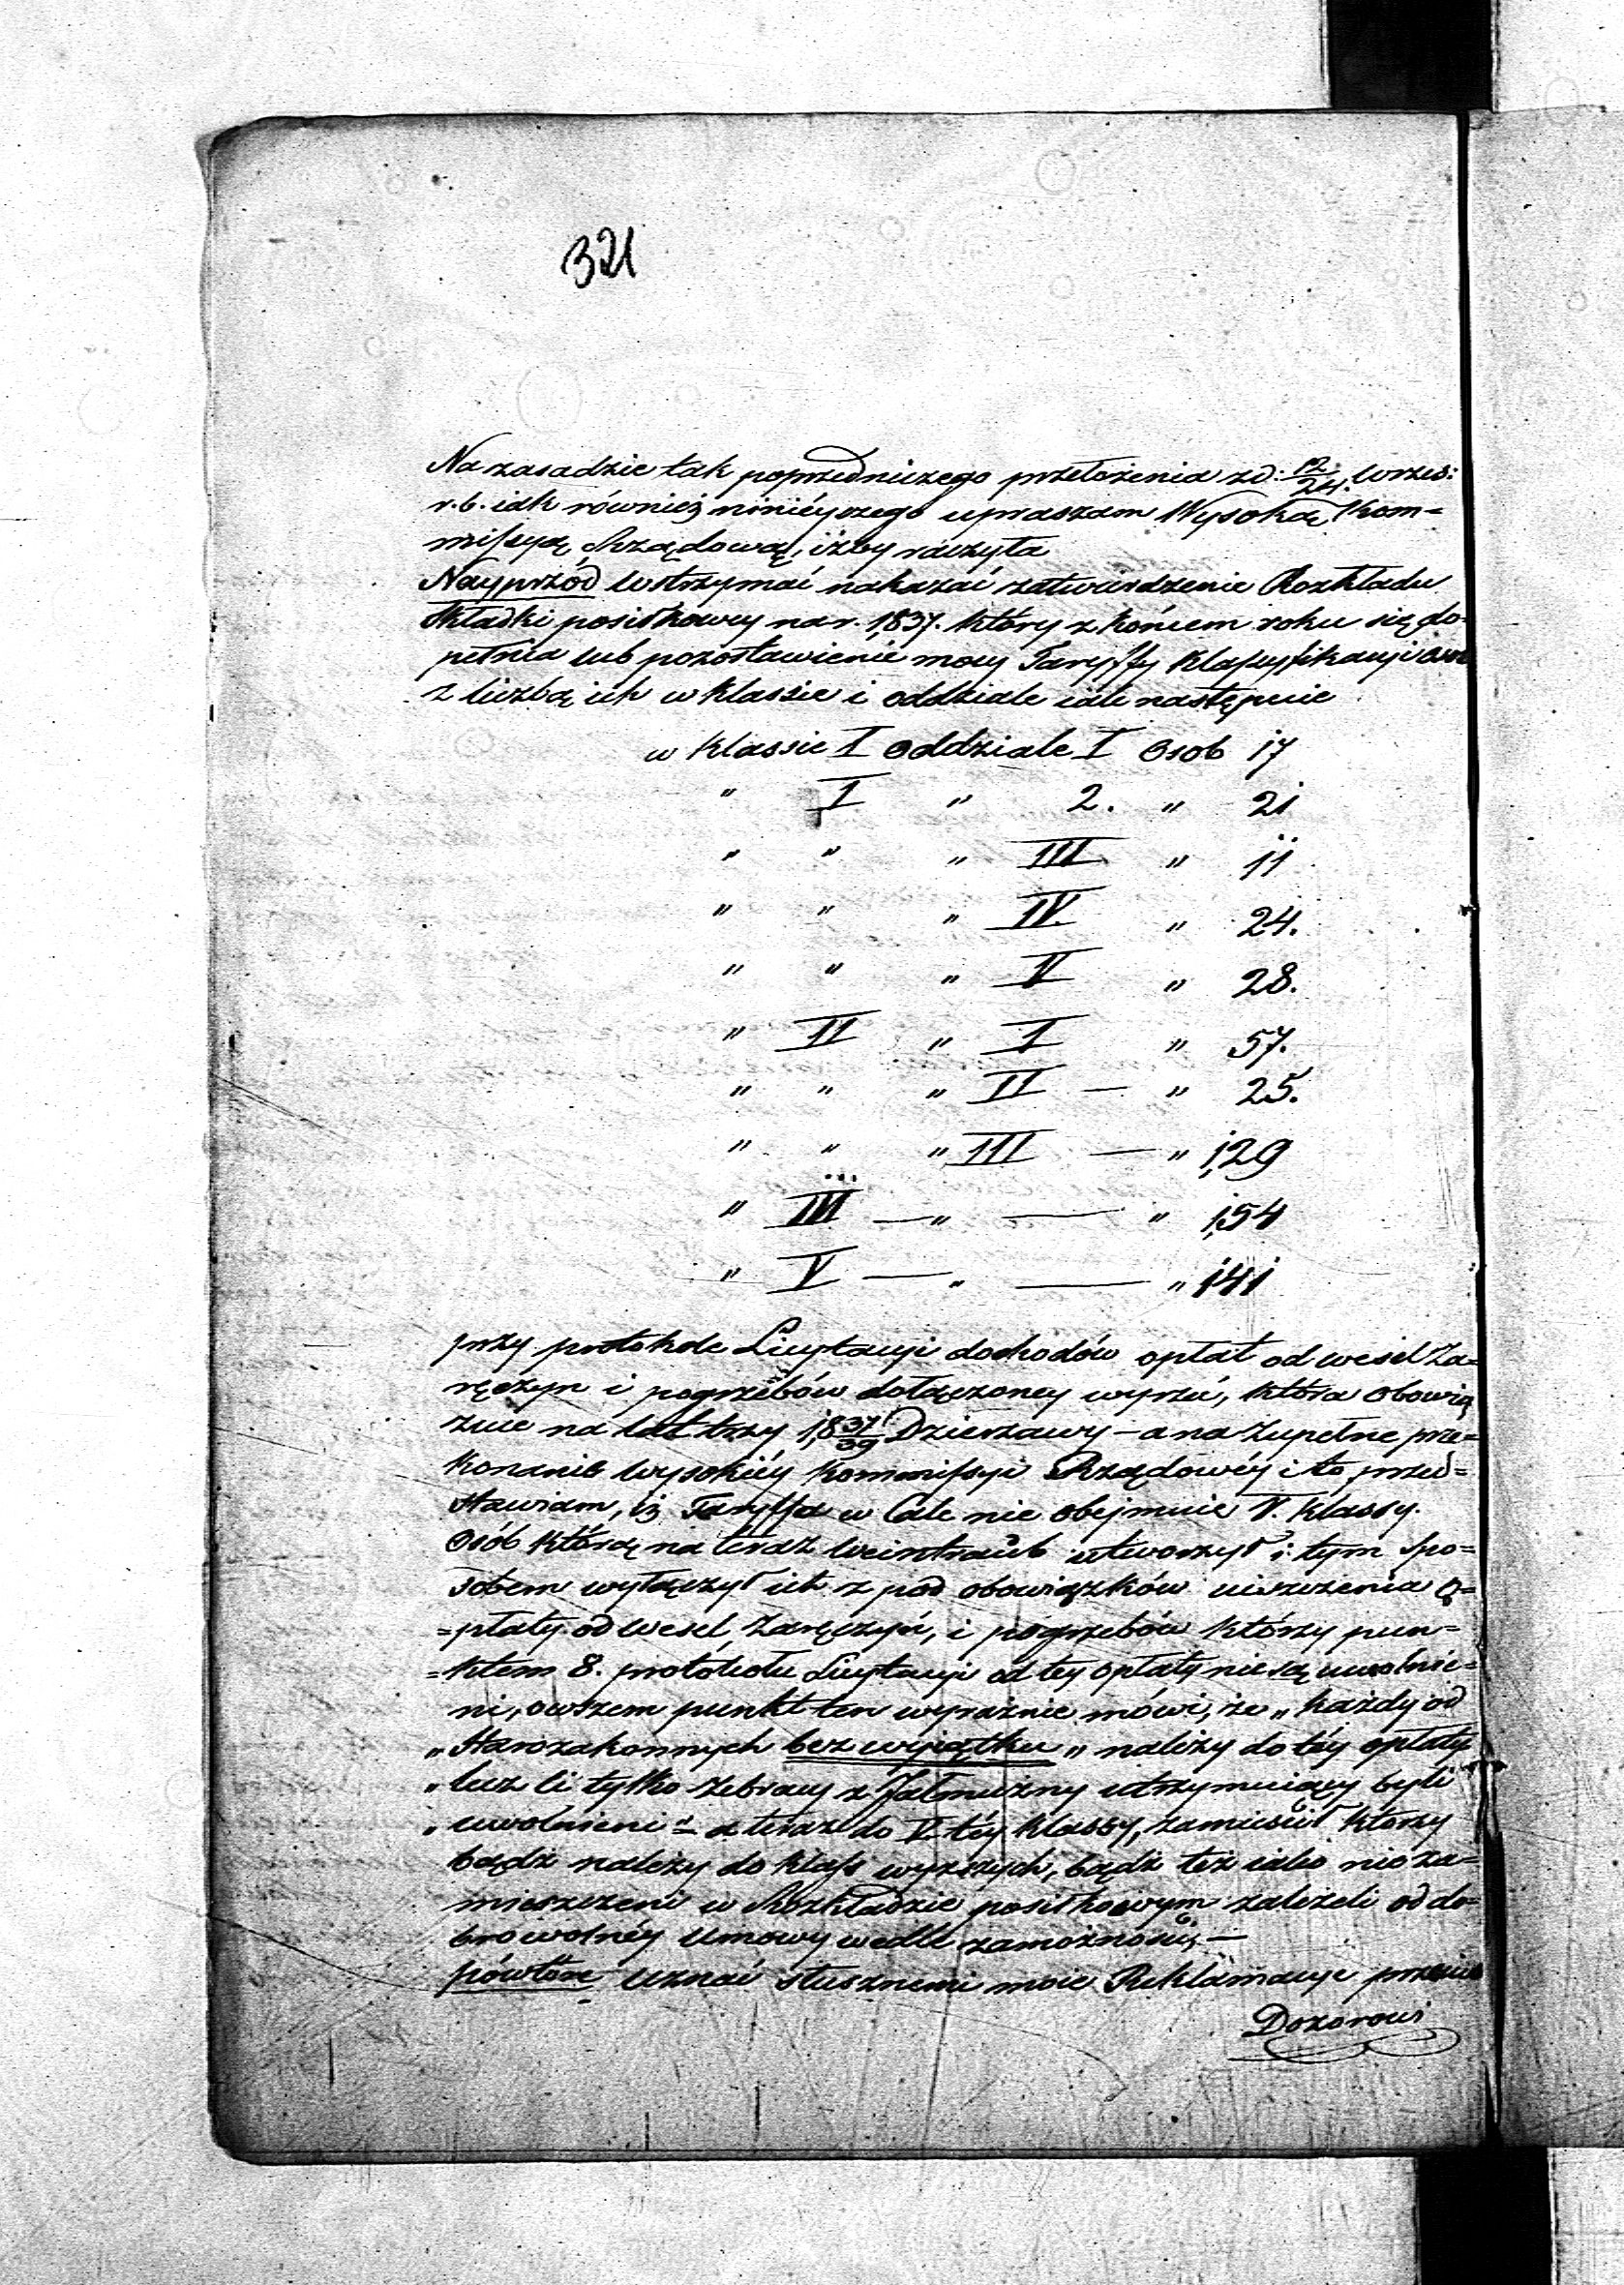 321
Na zasadzie tak poprzedniczego przełożenia z d: 12/24. Wrześ:
r. b. iak również ninieyszego upraszam Wysoką Kom=
missyą Rządową, iżby raczyła
Nayprzód wstrzymać nakazać zatwierdzenie Rozkładu
Składki posiłkowey na r. 1837. który z końcem roku się do=
pełnia lub pozostawienie mocy Taryffy Klassyfikacyi
z liczbą ich w klassie i oddziale iak następuie
w Klassie I Oddziale I Osob 17
" I " 2. " 21
" " " III " 11
" " " IV " 24.
" " " V " 28.
" II " I " 57.
" " " II — " 25.
" " " III — " 129
" III — " — " 154
" V — " — " 141
przy protokole Licytacyi dochodów opłat od wesel Za=
ręczyn i pogrzebów dołączoney wyrzec, która obowią
zuie na lat trzy 1837/39 Dzierzawy — a na Zupełne prze=
konanie Wysokiéy Kommissyi Rządowéy i to przed=
stawiam, iż Taryffa w Cale nie obejmuie V. Klassy.
Osób którą na teraz Weintraub utworzył i tym Spo=
sobem wyłączył ich z pod obowiązków uiszczenia o=
=płaty od wesel, Zaręczyn, i pogrzebów którzy pun=
=ktem 8. protokołu Licytacyi od tey opłaty nie są uwolnie=
ni, owszem punkt ten wyraźnie mówi, że „ każdy od
„ Starozakonnych bez wyiątku „ należy do téy opłaty
„ lecz li tylko żebracy z Jałmużny utrzymuiący byli
„ uwolnieni" — a teraz do V téy klassy, zamieścił którzy
bądź należy do klass wyższych, bądź też iako nieza=
mieszczeni w Rozkładzie posiłkowym zależeli od do=
browolnéy Umowy wedle zamożności, —
powtóre Uznać słusznemi moie Reklamacye
Dozorowi